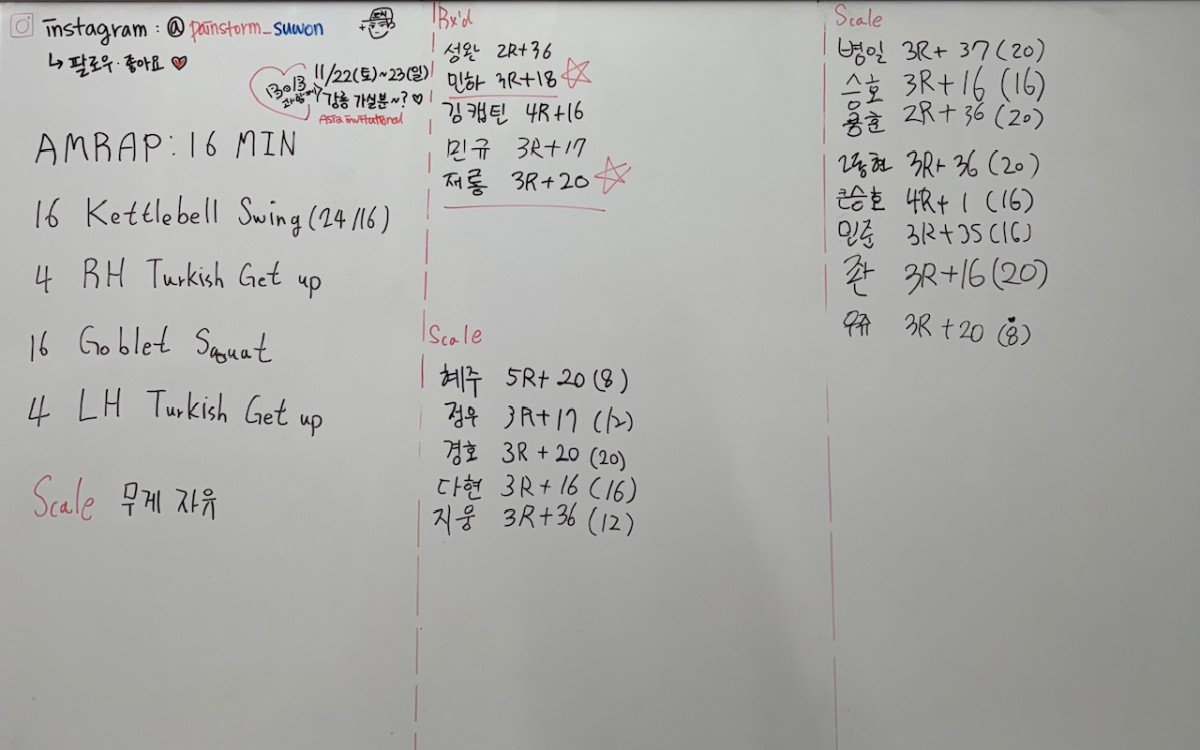 instagram : @painstorm_suwon
↳ 팔로우·좋아요 ♥
11/22(토)~23(일)
강릉 가실분~? ♥
AMRAP: 16 MIN
16 Kettlebell Swing (24/16)
4 RH Turkish Get up
16 Goblet Squat
4 LH Turkish Get up
Scale 무게 자유
Rx'd
성완 2R+36
민하 3R+18 ☆
김캡틴 4R+16
민규 3R+17
재룡 3R+20 ☆
Scale
혜주 5R+20 (8)
정우 3R+17 (12)
경호 3R+20 (20)
다현 3R+16 (16)
지웅 3R+36 (12)
Scale
병일 3R+37 (20)
승호 3R+16 (16)
용훈 2R+36 (20)
3R+36 (20)
큰승호 4R+1 (16)
민준 3R+35 (16)
좐 3R+16 (20)
3R+20 (8)